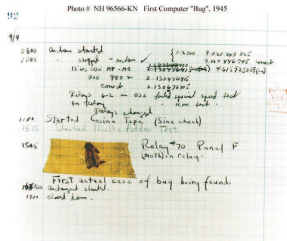 Photo # NH 96566-KN First Computer "Bug", 1945
92
9/9
0800 Antan started
1000 " stopped - antan ✓
13" uc (032) MP-MC
033 PRO 2 2.130476415
correct 2.130676415
Relays 6-2 in 033 failed special speed test
in relay
Relays changed
1100 Started Cosine Tape (Sine check)
1525 Started Multy Adder Test.
1545 Relay #70 Panel F
(Moth) in relay.
First actual case of bug being found.
antangent started.
1700 closed down.